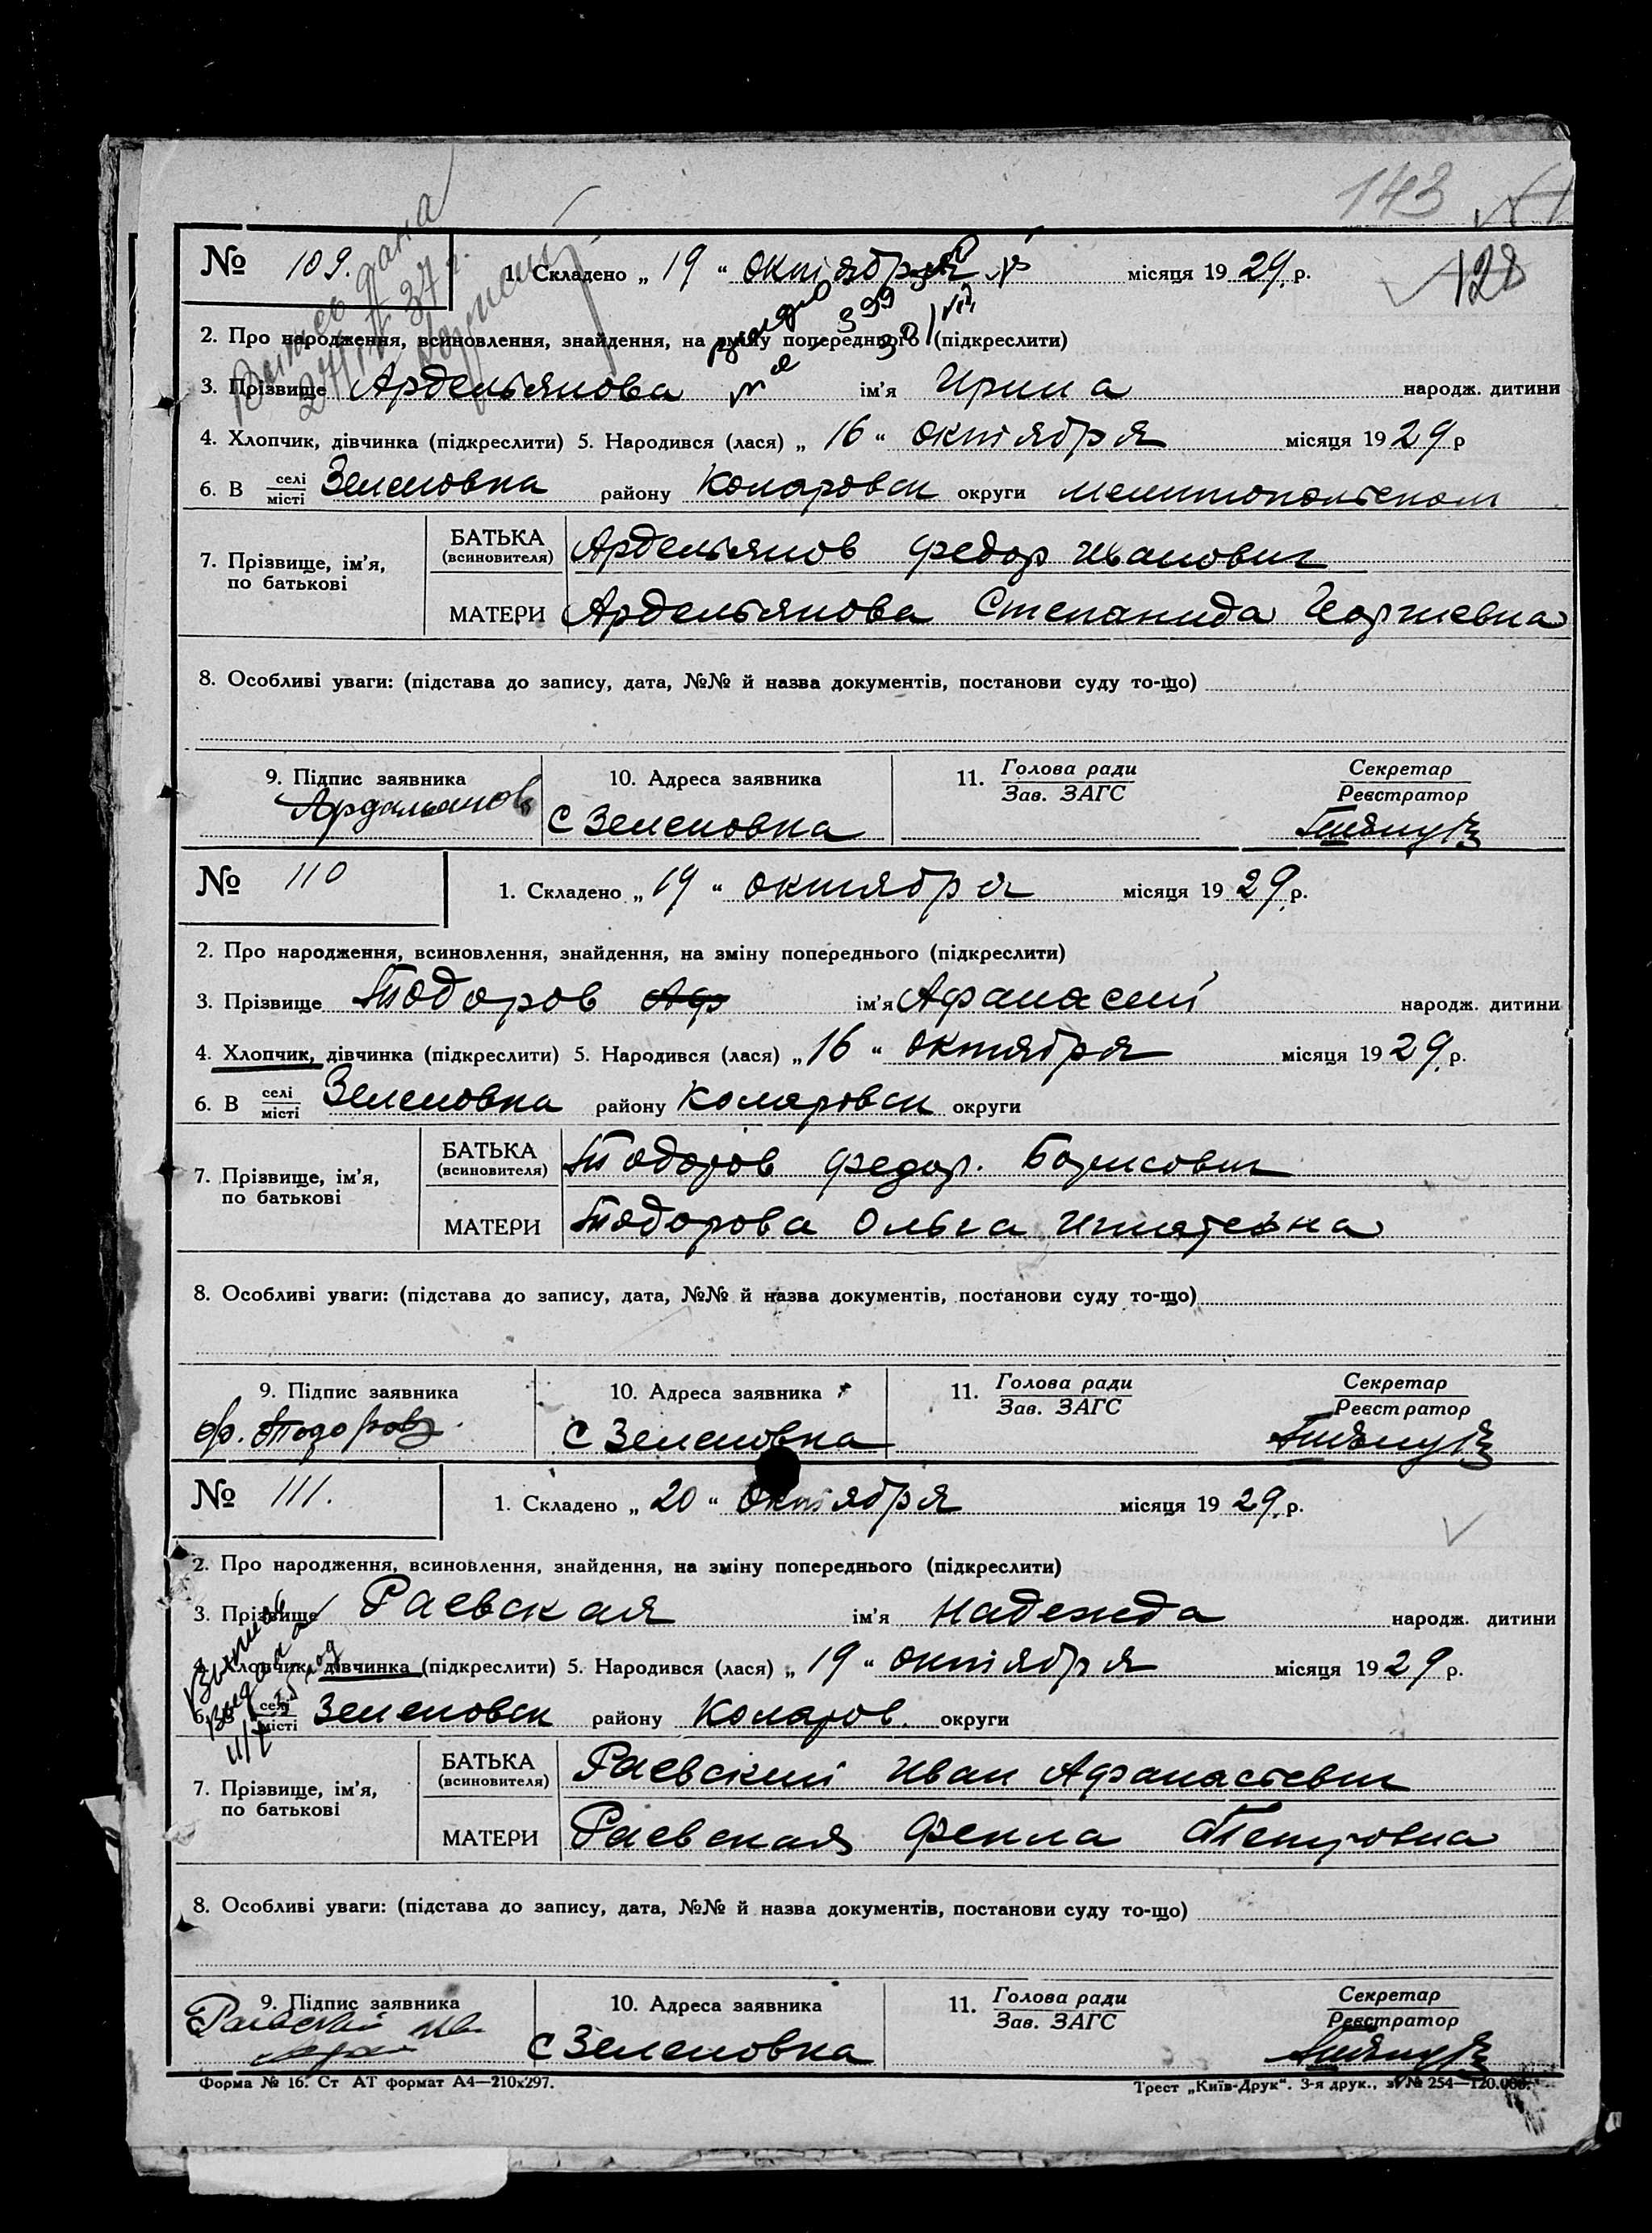 143
128
№ 109. 1. Складено „ 19 “ октября місяця 19 29. р.
2. Про народження, всиновлення, знайдення, на зміну попереднього (підкреслити)
3. Прізвище Ардельянова ім'я Ирина народж. дитини
4. Хлопчик, дівчинка (підкреслити) 5. Народився (лася) „ 16 “ октября місяця 19 29 р
6. В селі/місті Зеленовка району Коларовск округи Мелитопольском
7. Прізвище, ім'я, по батькові
БАТЬКА (всиновителя) Ардельянов Федор Иванович
МАТЕРИ Ардельянова Степанида Георгиевна
8. Особливі уваги: (підстава до запису, дата, №№ й назва документів, постанови суду то-що)
9. Підпис заявника 10. Адреса заявника 11. Голова ради/Зав. ЗАГС Секретар/Реєстратор
Ардельянов С Зеленовка
№ 110 1. Складено „ 19 “ октября місяця 19 29. р.
2. Про народження, всиновлення, знайдення, на зміну попереднього (підкреслити)
3. Прізвище Тодоров Аф ім'я Афанасий народж. дитини
4. Хлопчик, дівчинка (підкреслити) 5. Народився (лася) „ 16 “ октября місяця 19 29. р.
6. В селі/місті Зеленовка району Коларовск округи
7. Прізвище, ім'я, по батькові
БАТЬКА (всиновителя) Тодоров Федор. Борисович
МАТЕРИ Тодорова Ольга Игнатевна
8. Особливі уваги: (підстава до запису, дата, №№ й назва документів, постанови суду то-що)
9. Підпис заявника 10. Адреса заявника 11. Голова ради/Зав. ЗАГС Секретар/Реєстратор
Ф. Тодоров С Зеленовка
№ 111. 1. Складено „ 20 “ октября місяця 19 29. р.
2. Про народження, всиновлення, знайдення, на зміну попереднього (підкреслити)
3. Прізвище Раевская ім'я Надежда народж. дитини
4. Хлопчик, дівчинка (підкреслити) 5. Народився (лася) „ 19 “ октября місяця 19 29 р.
6. В селі/місті Зеленовск району Коларов. округи
7. Прізвище, ім'я, по батькові
БАТЬКА (всиновителя) Раевский Иван Афанасьевич
МАТЕРИ Раевская Фекла Петровна
8. Особливі уваги: (підстава до запису, дата, №№ й назва документів, постанови суду то-що)
9. Підпис заявника 10. Адреса заявника 11. Голова ради/Зав. ЗАГС Секретар/Реєстратор
Раевский Ив. С Зеленовка
Форма № 16. Ст АТ формат А4—210х297. Трест „Київ-Друк“. 3-я друк., з. № 254—120.000.